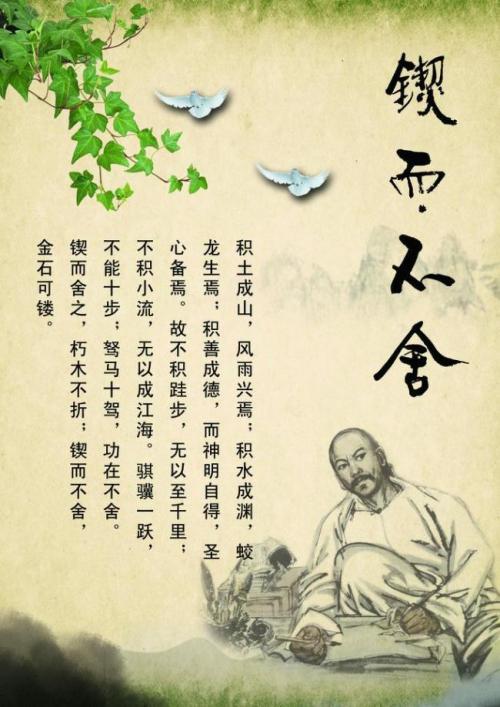 锲而不舍
积土成山，风雨兴焉；积水成渊，蛟
龙生焉；积善成德，而神明自得，圣
心备焉。故不积跬步，无以至千里；
不积小流，无以成江海。骐骥一跃，
不能十步；驽马十驾，功在不舍。
锲而舍之，朽木不折；锲而不舍，
金石可镂。